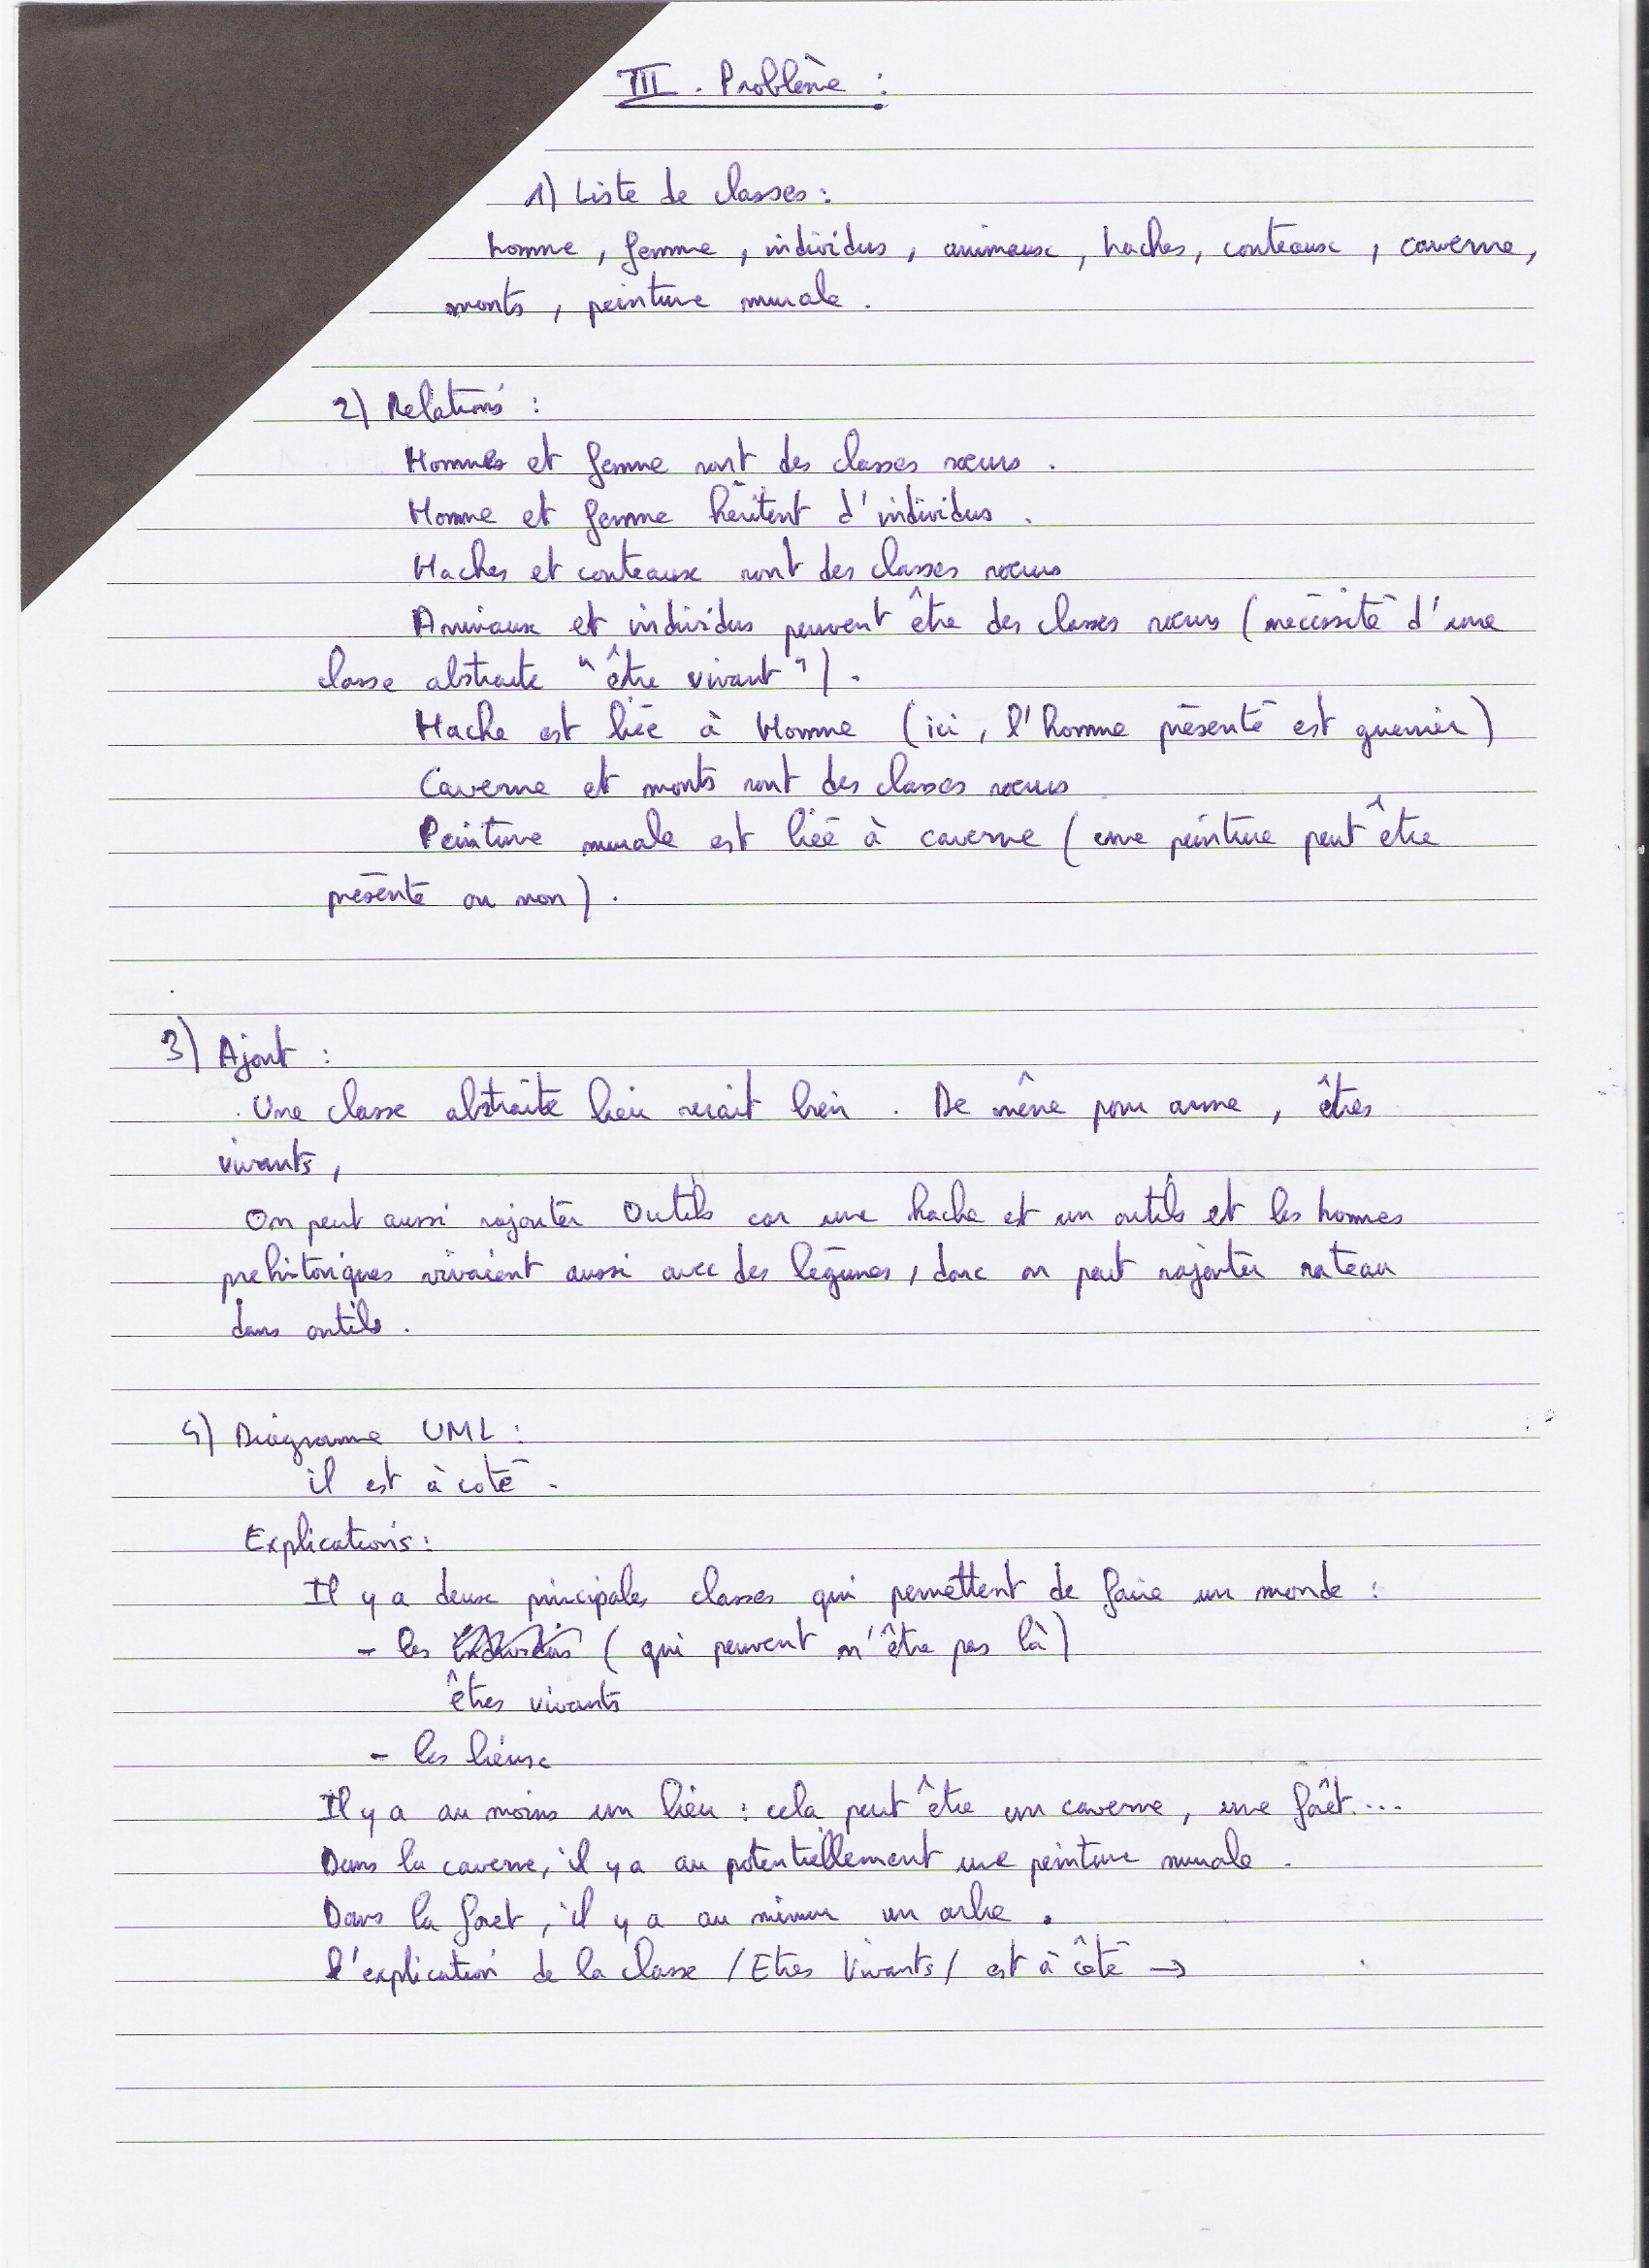 III . Problème :
1) Liste de classes :
homme , femme , individus , animaux , haches , couteaux , caverne ,
monts , peinture murale .
2) Relations :
Hommes et femme sont des classes sœurs .
Homme et femme héritent d'individus .
Haches et couteaux sont des classes sœurs
Animaux et individus peuvent être des classes sœurs ( nécéssité d'une
classe abstraite "être vivant" ) .
Hache est liée à Homme ( ici , l'homme présenté est guerrier )
Caverne et monts sont des classes sœurs
Peinture murale est liéé à caverne ( une peinture peut être
présenté ou non ) .
3) Ajout :
. Une classe abstraite lieu serait bien . De même pour arme , êtres
vivants ,
On peut aussi rajouter Outils car une hache et un outils et les hommes
prehistoriques vivaient aussi avec des légumes , donc on peut rajouter rateau
dans outils .
4) Diagramme UML :
il est à coté .
Explications :
Il y a deux principales classes qui permettent de faire un monde :
- les ( qui peuvent n'être pas là )
êtres vivants
- les lieux
Il y a au moins un lieu : cela peut être un caverne , une forêt ....
Dans la caverne , il y a au potentiellement une peinture murale .
Dans la foret , il y a au minimum un arbre .
L'explication de la classe / Etres Vivants / est à côté →